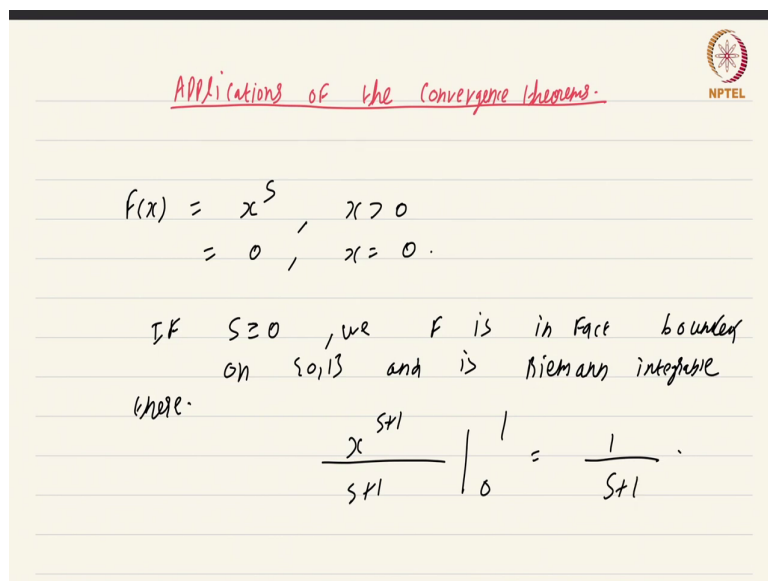 Applications of the Convergence theorems.
NPTEL
F(x) = x^s, x > 0
= 0, x = 0.
If s ≥ 0, we F is in Fact bounded
on [0,1] and is Riemann integrable
there.
x^{s+1}/s+1 |_0^1 = 1/s+1.